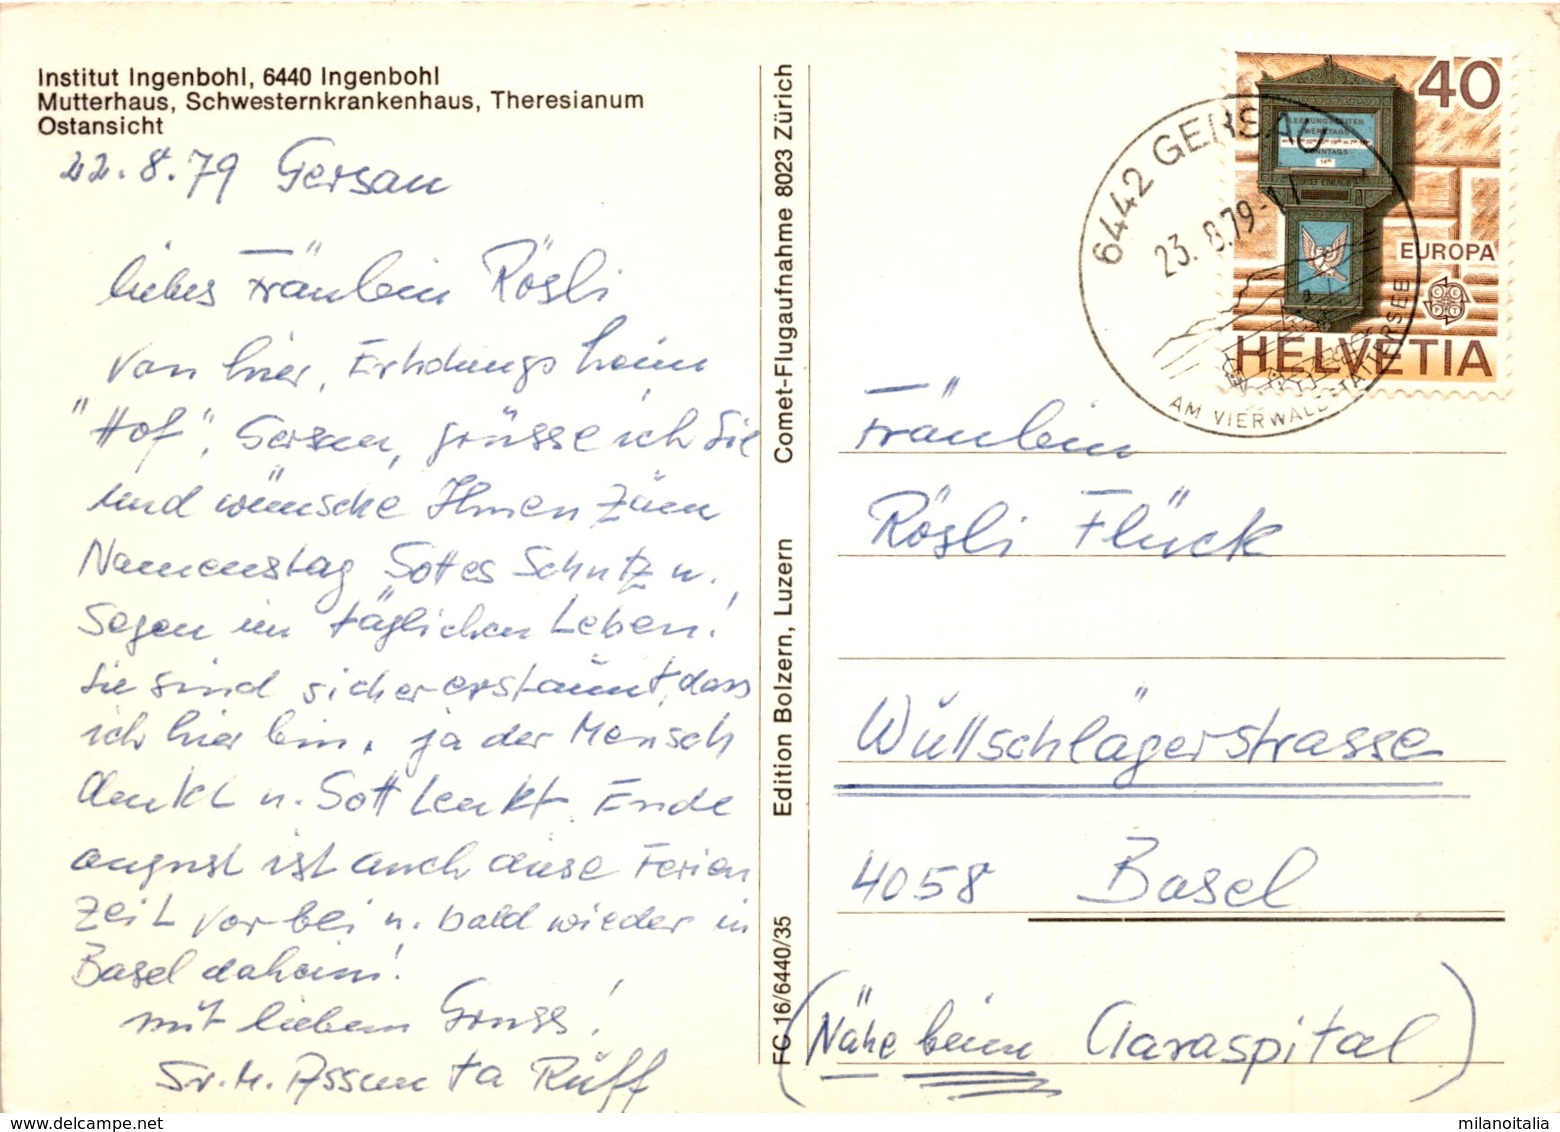 Institut Ingenbohl, 6440 Ingenbohl
Mutterhaus, Schwesternkrankenhaus, Theresianum
Ostansicht
22.8.79 Gersau
liebes Fräulein Rösli
Von hier, Erholungsheim
"Hof", Gersau, grüsse ich Sie
und wünsche Ihnen zum
Namenstag Gottes Schutz u.
Segen im täglichen Leben!
Sie sind sicher erstaunt, dass
ich hier bin, ja der Mensch
denkt u. Gott lenkt. Ende
august ist auch diese Ferien
zeit vorbei u. bald wieder in
Basel daheim!
mit liebem Gruss!
Sr. M. Assunta Rüff
Comet-Flugaufnahme 8023 Zürich
Edition Bolzern, Luzern
FC 16/6440/35
6442 GERSAU
23.8.79-11
AM VIERWALDSTÄTTERSEE
40
LEERUNGSZEITEN
WERKTAGS
SONNTAGS
EUROPA
CEPT
HELVETIA
Fräulein
Rösli Flück
Wüllschlägerstrasse
4058 Basel
(Nähe beim Claraspital)
milanoitalia